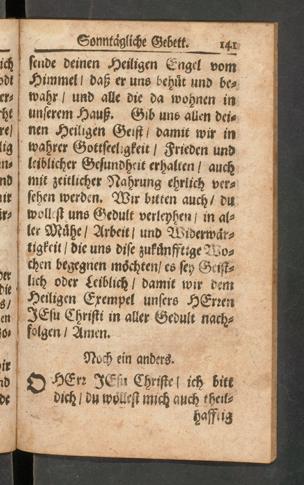 Sonntägliche Gebett. 141
sende deinen Heiligen Engel vom
Himmel / daß er uns behüt und be-
wahr / und alle die da wohnen in
unserem Hauß. Gib uns allen dei-
nen Heiligen Geist / damit wir in
wahrer Gottseeligkeit / Frieden und
leiblicher Gesundheit erhalten / auch
mit zeitlicher Nahrung ehrlich ver-
sehen werden. Wir bitten auch / du
wollest uns Gedult verleyhen / in al-
ler Mühe / Arbeit / und Widerwär-
tigkeit / die uns dise zukünfftige Wo-
chen begegnen möchten / es sey Geist-
lich oder Leiblich / damit wir dem
Heiligen Exempel unsers HErren
JEsu Christi in aller Gedult nach-
folgen / Amen.
Noch ein anders.
O HErr JEsu Christe / ich bitt
dich / du wöllest mich auch theil-
hafftig